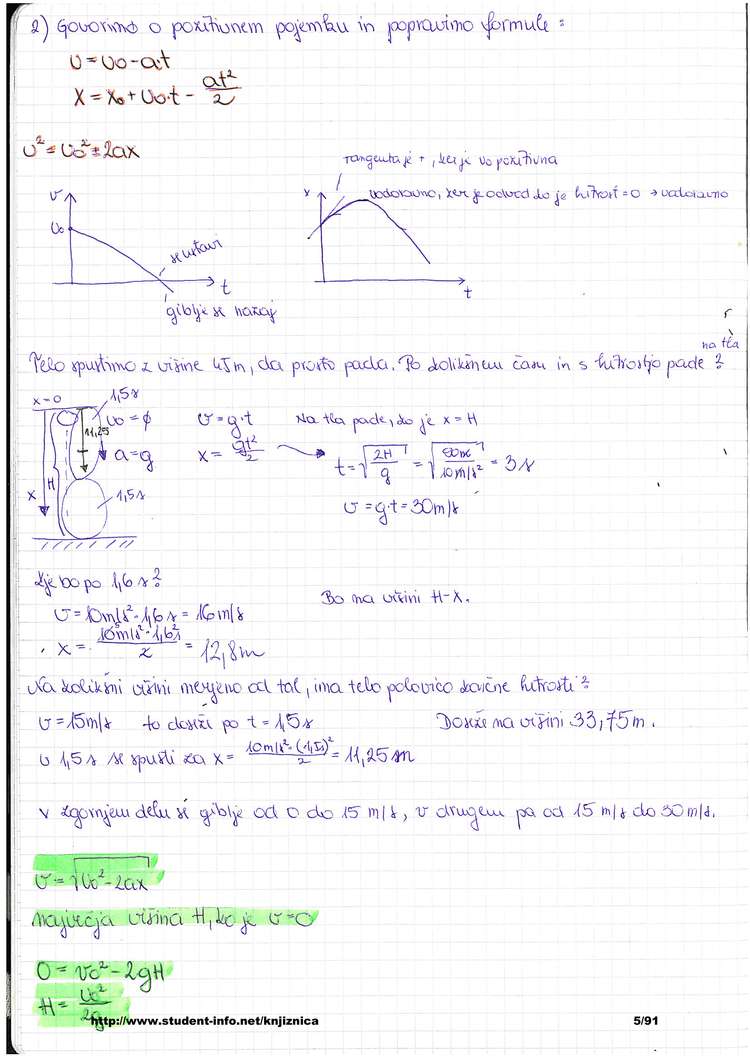 2) Govorimo o pozitivnem pojemku in popravimo formule:
v = v₀ - a·t
x = x₀ + v₀·t - at²/2
v² = v₀² ± 2ax
tangenta je +, ker je v₀ pozitivna
vodoravno, ker je odvod do je hitrost = 0 → vodoravno
v
v₀
se ustavi
t
giblje se nazaj
x
t
Telo spustimo z višine 45m, da prosto pada. Po kolikšnem času in s hitrostjo pade na tla?
x=0
1,5s
v₀ = ∅
11,25
a = g
H
x
1,5s
v = g·t
x = gt²/2
Na tla pade, ko je x = H
t = √(2H/g) = √(90m/10m/s²) = 3s
v = g·t = 30m/s
Kje bo po 1,6s?
v = 10m/s²·1,6s = 16m/s
Bo na višini H-x.
x = 10m/s²·1,6²s/2 = 12,8m
Na kolikšni višini merjeno od tal, ima telo polovico končne hitrosti?
v = 15m/s to doseže po t = 1,5s
Doseže na višini 33,75m.
v 1,5s se spusti za x = 10m/s²·(1,5s)²/2 = 11,25m
v zgornjem delu se giblje od 0 do 15 m/s, v drugem pa od 15 m/s do 30 m/s.
v = √(v₀² - 2ax)
največja višina H, ko je v=0
0 = v₀² - 2gH
H = v₀²/2g
http://www.student-info.net/knjiznica
5/91